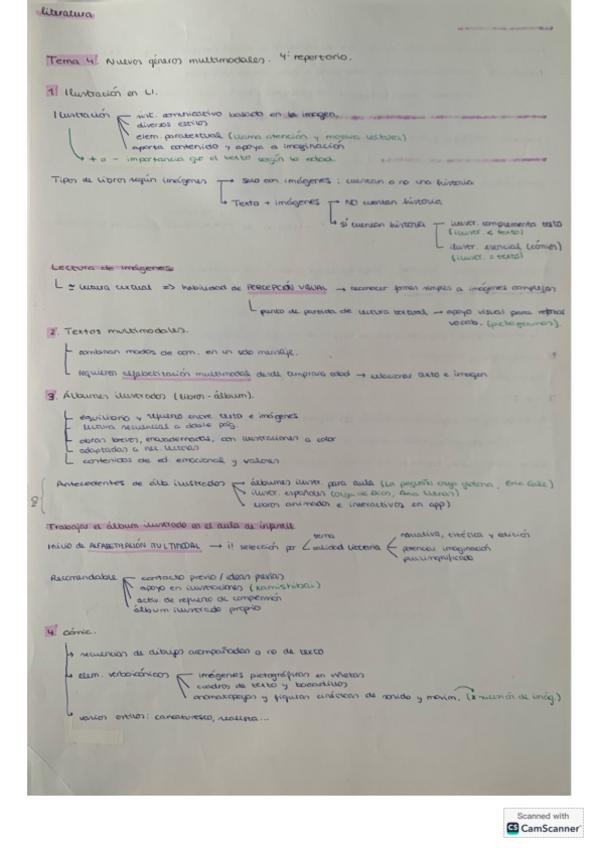 literatura
Tema 4. Nuevos géneros multimodales. 4º repertorio.
1. Ilustración en LI.
Ilustración
sist. comunicativo basado en la imagen
diversos estilos
elem. paratextual (llama atención y mejora lectura)
aporta contenido y apoya a imaginación
+ o - importancia que el texto según la edad.
Tipos de libros según imágenes → solo con imágenes: cuentan o no una historia
Texto + imágenes → NO cuentan historia
sí cuentan historia
ilustr. complementa texto
(ilustr. < texto)
ilustr. esencial (cómics)
(ilustr. = texto)
Lectura de imágenes
≃ lectura textual => habilidad de PERCEPCIÓN VISUAL → reconocer formas simples a imágenes complejas
punto de partida de lectura textual → apoyo visual para
vocab. (pictogramas)
2. Textos multimodales.
combinan modos de com. en un solo mensaje.
requieren alfabetización multimodal desde temprana edad → relacionar texto e imagen
3. Álbumes ilustrados (libros-álbum).
equilibrio y refuerzo entre texto e imágenes
lectura secuencial a doble pág.
obras breves, encuadernadas, con ilustraciones a color
adaptadas a nec. lectoras
contenidos de ed. emocional y valores
Antecedentes de álb. ilustrados
álbumes ilustr. para aula (La pequeña oruga glotona, Eric Carle)
ilustr. españoles
libros animados e interactivos en app)
Trabajar el álbum ilustrado en el aula de infantil
Inicio de ALFABETIZACIÓN MULTIMODAL → i! selección por
tema
calidad literaria
narrativa, estética y edición
potenciar imaginación
plurisignificado
Recomendable
contacto previo / ideas previas
apoyo en ilustraciones (kamishibai)
activ. de refuerzo de comprensión
álbum ilustrado propio
4. Cómic.
secuencias de dibujo acompañadas o no de texto
elem. verboicónicos
imágenes pictográficas en viñetas
cuadros de texto y bocadillos
onomatopeyas y figuras cinéticas de sonido y movim. (sucesión de imág.)
varios estilos: caricaturesco, realista...
Scanned with
CS CamScanner